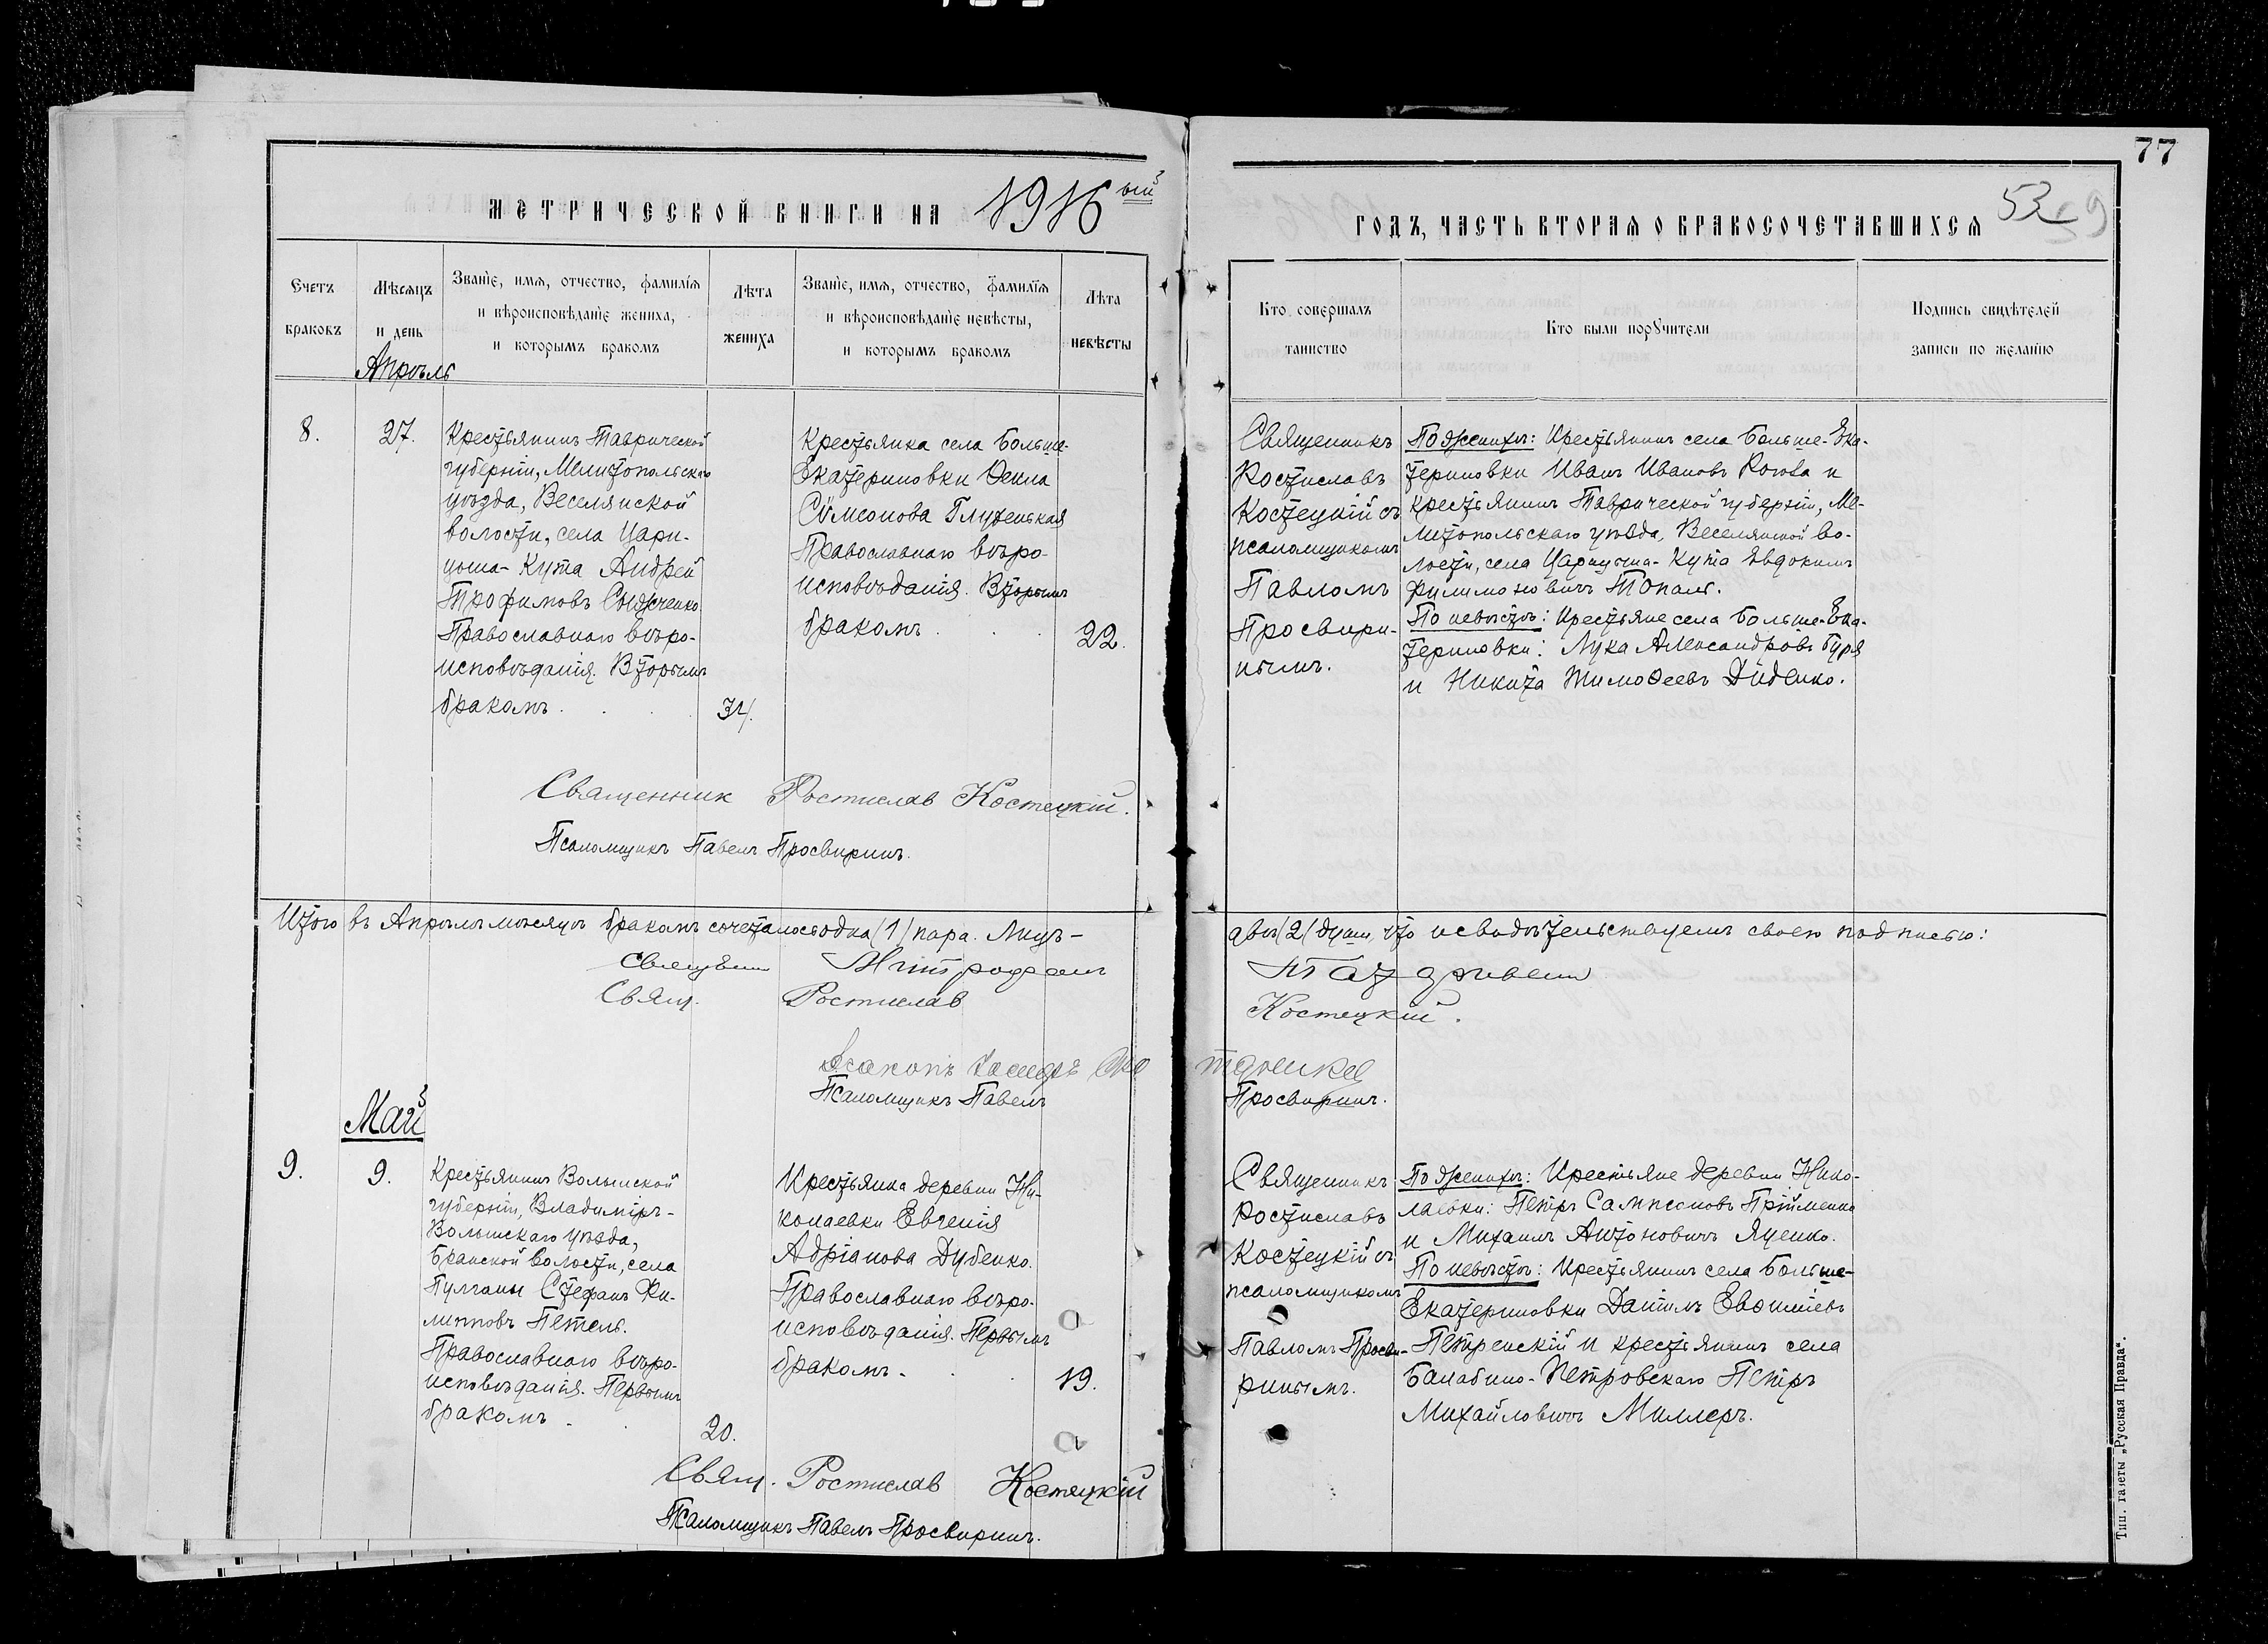 77
МЕТРИЧЕСКОЙ КНИГИ НА 1916ый
ГОДЪ, ЧАСТЬ ВТОРАЯ О БРАКОСОЧЕТАВШИХСЯ
53
Счетъ браковъ
Мѣсяцъ и день
Званіе, имя, отчество, фамилія
и вѣроисповѣданіе жениха,
и которымъ бракомъ
Лѣта жениха
Званіе, имя, отчество, фамилія
и вѣроисповѣданіе невѣсты,
и которымъ бракомъ
Лѣта невѣсты
Кто совершалъ
таинство
Кто были поручители
Подпись свидѣтелей
записи по желанію
Апрѣль
8.
27.
Крестьянинъ Таврической
губерніи, Мелитопольскаго
уѣзда, Веселянской
волости, села Цари-
цына-Кута Андрей
Трофимовъ
Православнаго вѣро-
исповѣданія. Вторымъ
бракомъ.
34.
Крестьянка села Больше-
Екатериновки Ѳекла
Симеонова Глуженькая
Православнаго вѣро-
исповѣданія. Вторымъ
бракомъ
22.
Священникъ
Ростиславъ
Костецкій съ
псаломщикомъ
Павломъ
Просвири-
нымъ.
По женихѣ: Крестьянинъ села Больше-Ека-
териновки Иванъ Ивановъ и
крестьянинъ Таврической губерніи, Ме-
литопольскаго уѣзда, Веселянской во-
лости, села Царицына-Кута Евдокимъ
Филимоновичъ Топалъ.
По невѣстѣ: Крестьяне села Больше-Ека-
териновки: Лука Александровъ Буря
и Никита Тимоѳеевъ Диденко.
Священник Ростислав Костецкій.
Псаломщикъ Павелъ Просвиринъ.
Итого въ Апрѣлѣ мѣсяцѣ бракомъ сочеталось одна (1) пара. Лицъ -
двѣ (2) души, что и свидѣтельствуемъ своею подписью:
Священ Митрофан
Свящ. Ростислав
Костецкій.
Псаломщикъ Павелъ
Просвиринъ.
Май
9.
9.
Крестьянинъ Волынской
губерніи, Владиміръ-
Волынскаго уѣзда,
Бранской волости, села
Пулганы Стефанъ Фи-
липповъ Петель.
Православнаго вѣро-
исповѣданія. Первымъ
бракомъ.
20.
Крестьянка деревни Ни-
колаевки Евгенія
Адріанова Дубенко.
Православнаго вѣро-
исповѣданія. Первымъ
бракомъ.
19.
Священникъ
Ростиславъ
Костецкій съ
псаломщикомъ
Павломъ Просви-
ринымъ.
По женихѣ: Крестьяне деревни Нико-
лаевки: Петръ Сампсоновъ Прійменко
и Михаилъ Антоновичъ Яценко.
По невѣстѣ: Крестьянинъ села Больше-
Екатериновки Даніилъ
Петренскій и крестьянинъ села
Балабино-Петровскаго Петръ
Михайловичъ Миллеръ.
Свящ. Ростислав Костецкій
Псаломщикъ Павелъ Просвиринъ.
Тип. газеты „Русская Правда".